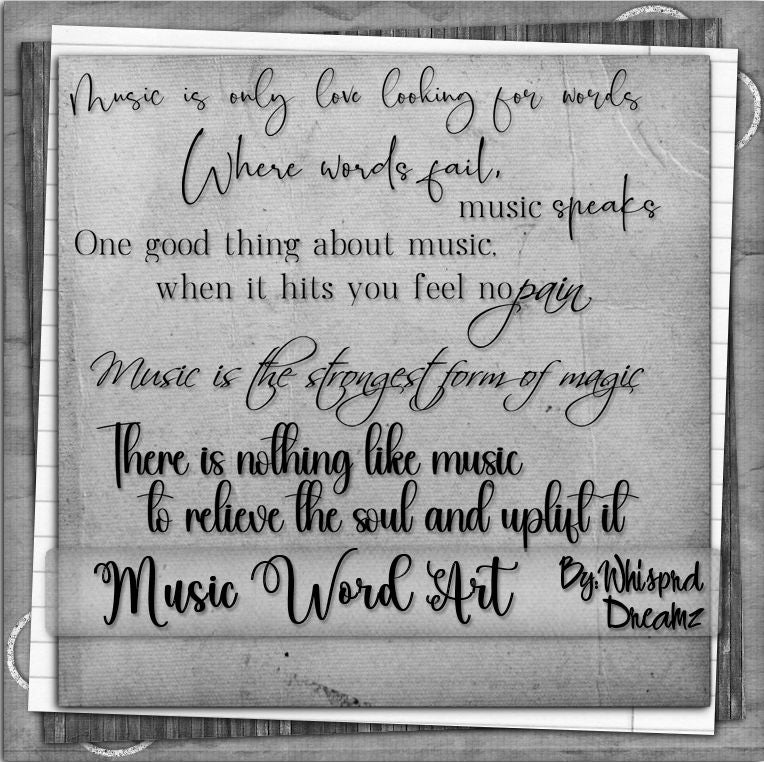 Music is only love looking for words
Where words fail,
music speaks
One good thing about music,
when it hits you feel no pain
Music is the strongest form of magic
There is nothing like music
to relieve the soul and uplift it
Music Word Art
By: Whisprd
Dreamz